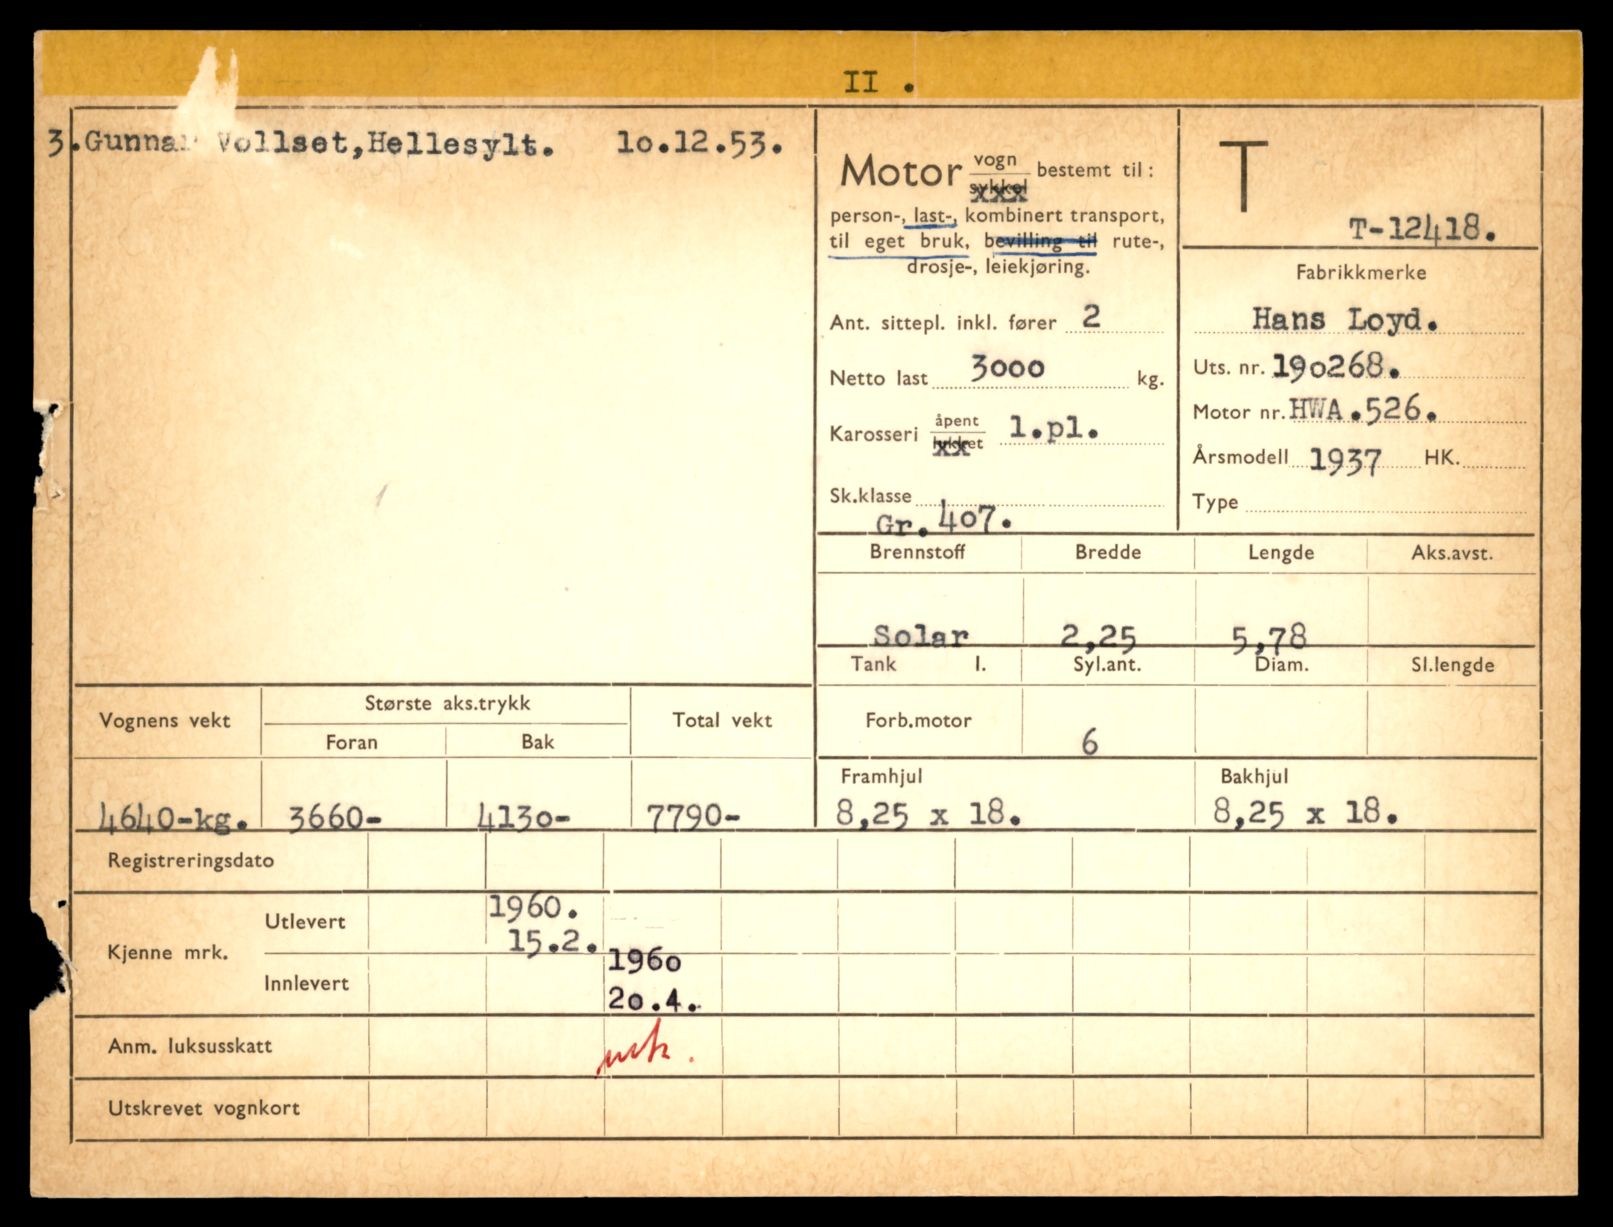 II .
3.Gunnar Vollset,Hellesylt. 10.12.53.
Motor vogn
sykkel bestemt til :
xxx
person-, last-, kombinert transport,
til eget bruk, bevilling til rute-,
drosje-, leiekjøring.
Ant. sittepl. inkl. fører 2
Netto last 3000 kg.
Karosseri åpent
lukket l.pl.
xx
Sk.klasse
Gr.407.
T
T-12418.
Fabrikkmerke
Hans Loyd.
Uts. nr. 190268.
Motor nr. HWA.526.
Årsmodell 1937 HK.
Type
Brennstoff Bredde Lengde Aks.avst.
Solar 2,25 5,78
Tank l. Syl.ant. Diam. Sl.lengde
Forb.motor 6
Framhjul Bakhjul
8,25 x 18. 8,25 x 18.
Vognens vekt Største aks.trykk Total vekt
Foran Bak
4640-kg. 3660- 4130- 7790-
Registreringsdato
Kjenne mrk.
Utlevert 1960.
15.2.
Innlevert 1960
20.4.
Anm. luksusskatt
Utskrevet vognkort